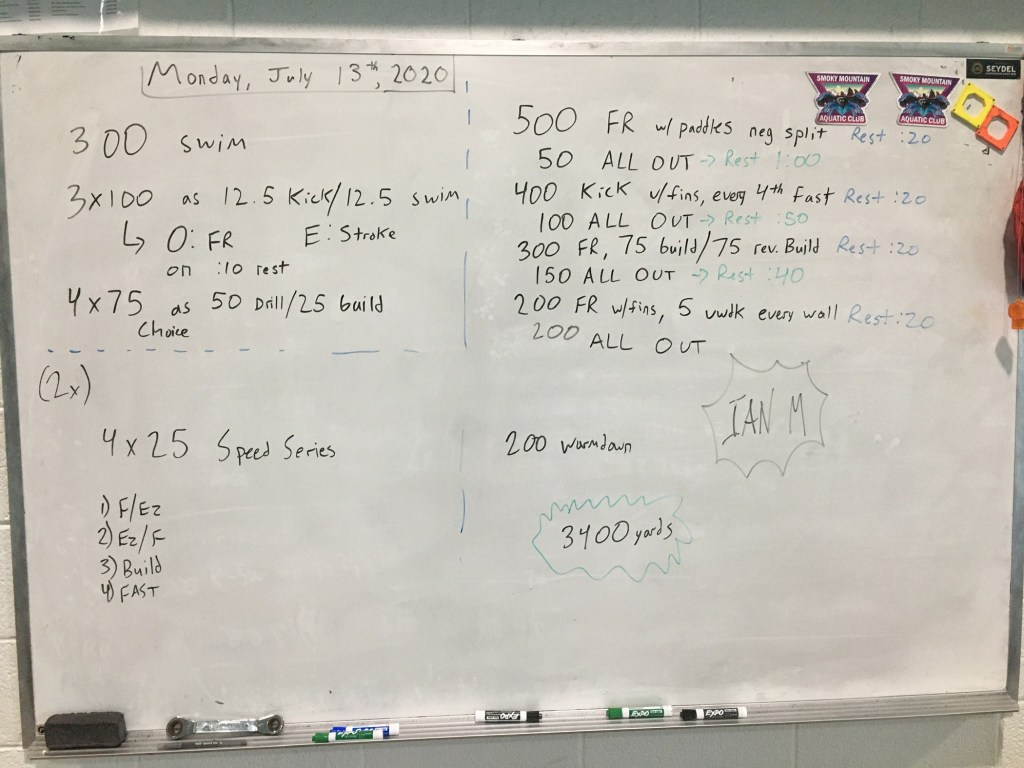 Monday, July 13th, 2020
300 swim
3x100 as 12.5 Kick/12.5 swim
↳ O: FR E: Stroke
on :10 rest
4 x 75 as 50 Drill/25 build
Choice
(2x)
4 x 25 Speed Series
1) F/Ez
2) Ez/F
3) Build
4) FAST
500 FR w/ paddles neg split Rest :20
50 ALL OUT → Rest 1:00
400 Kick w/fins, every 4th fast Rest :20
100 ALL OUT → Rest :50
300 FR, 75 build/75 rev. Build Rest :20
150 ALL OUT → Rest :40
200 FR w/fins, 5 uwdk every wall Rest :20
200 ALL OUT
IAN M
200 warmdown
3400 yards
SMOKY MOUNTAIN
AQUATIC CLUB
SMOKY MOUNTAIN
AQUATIC CLUB
SEYDEL
EXPO
EXPO
EXPO